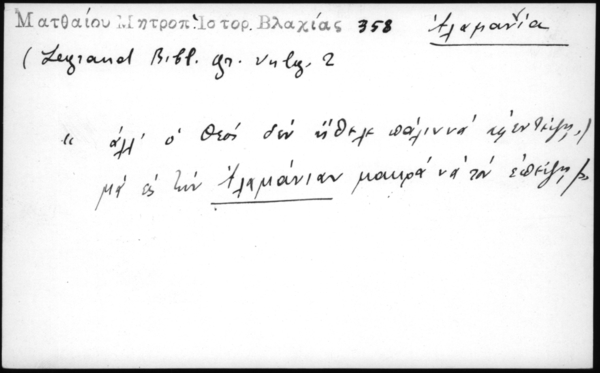 Ματθαίου Μητροπ. Ἱστορ. Βλαχίας 358 Ἀλαμανία
(Legrand Bibl. gr. vulg. 2
" ἀλλ' ὁ θεός δέν ἤθελε πάλιν νά
μά εἰς τήν Ἀλαμάνιαν μακρά νά τόν